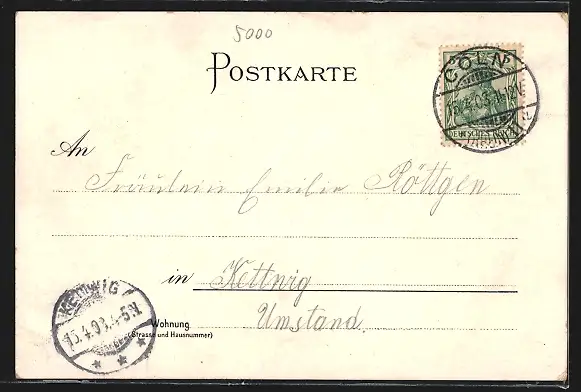 5000
POSTKARTE
CÖLN
15.4.03. 11-12V.
DEUTSCHES REICH
An
Fräulein Emilie Röttgen
in Kettwig
KETTWIG
15.4.03. 4-5N.
Umstand.
Wohnung
(Strasse und Hausnummer)